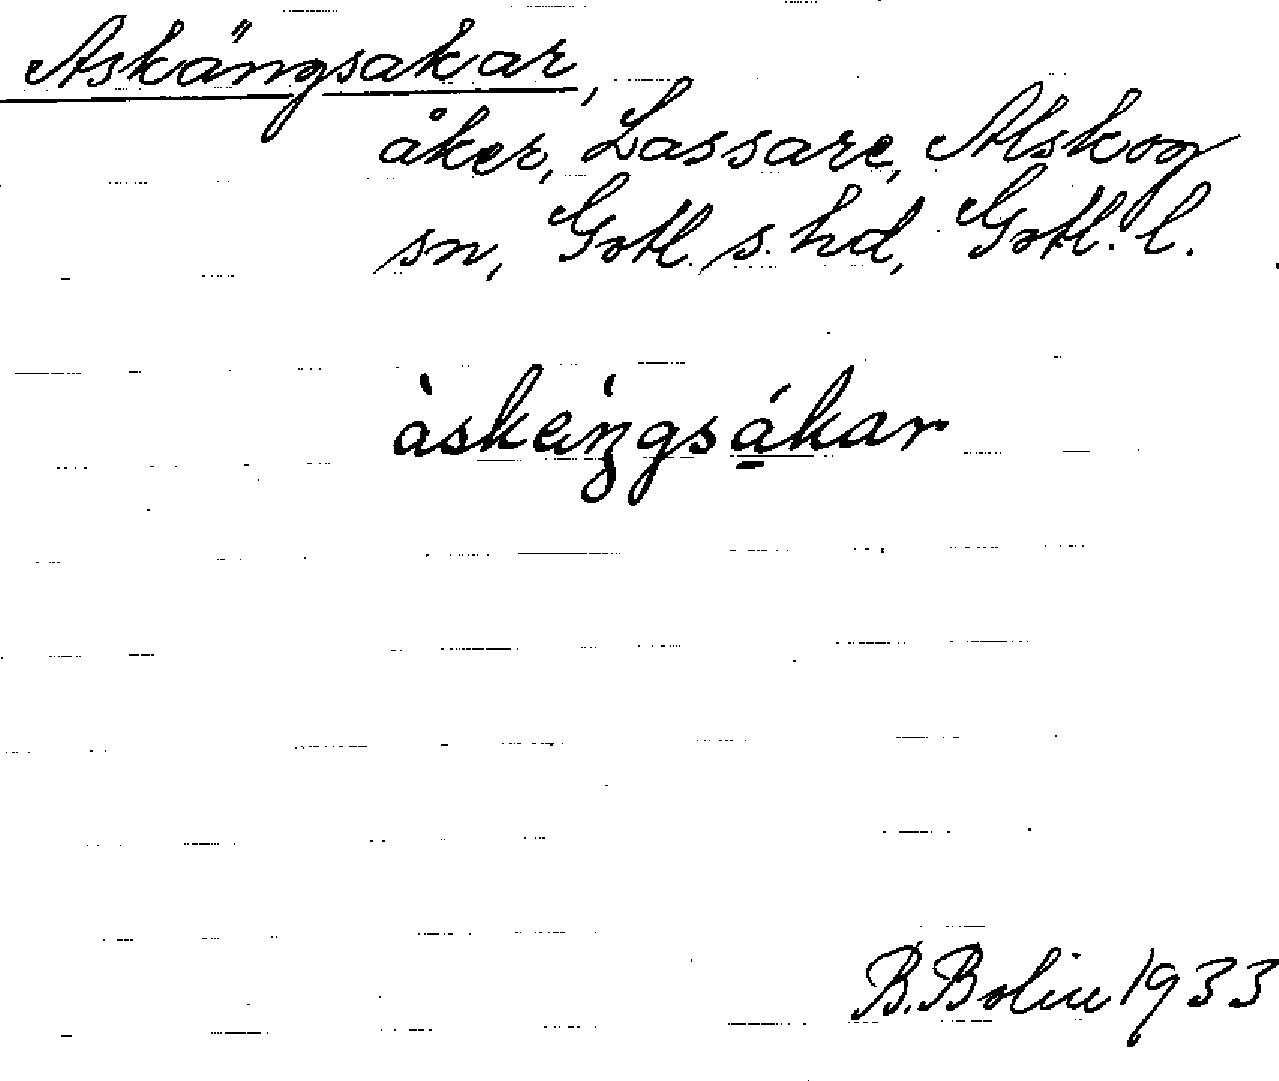 Askängsakar,
åker, Lassare, Alskog
sn, Gotl. s. hd, Gotl. l.
àskèìŋgsá̱kar
B. Bolin 1933